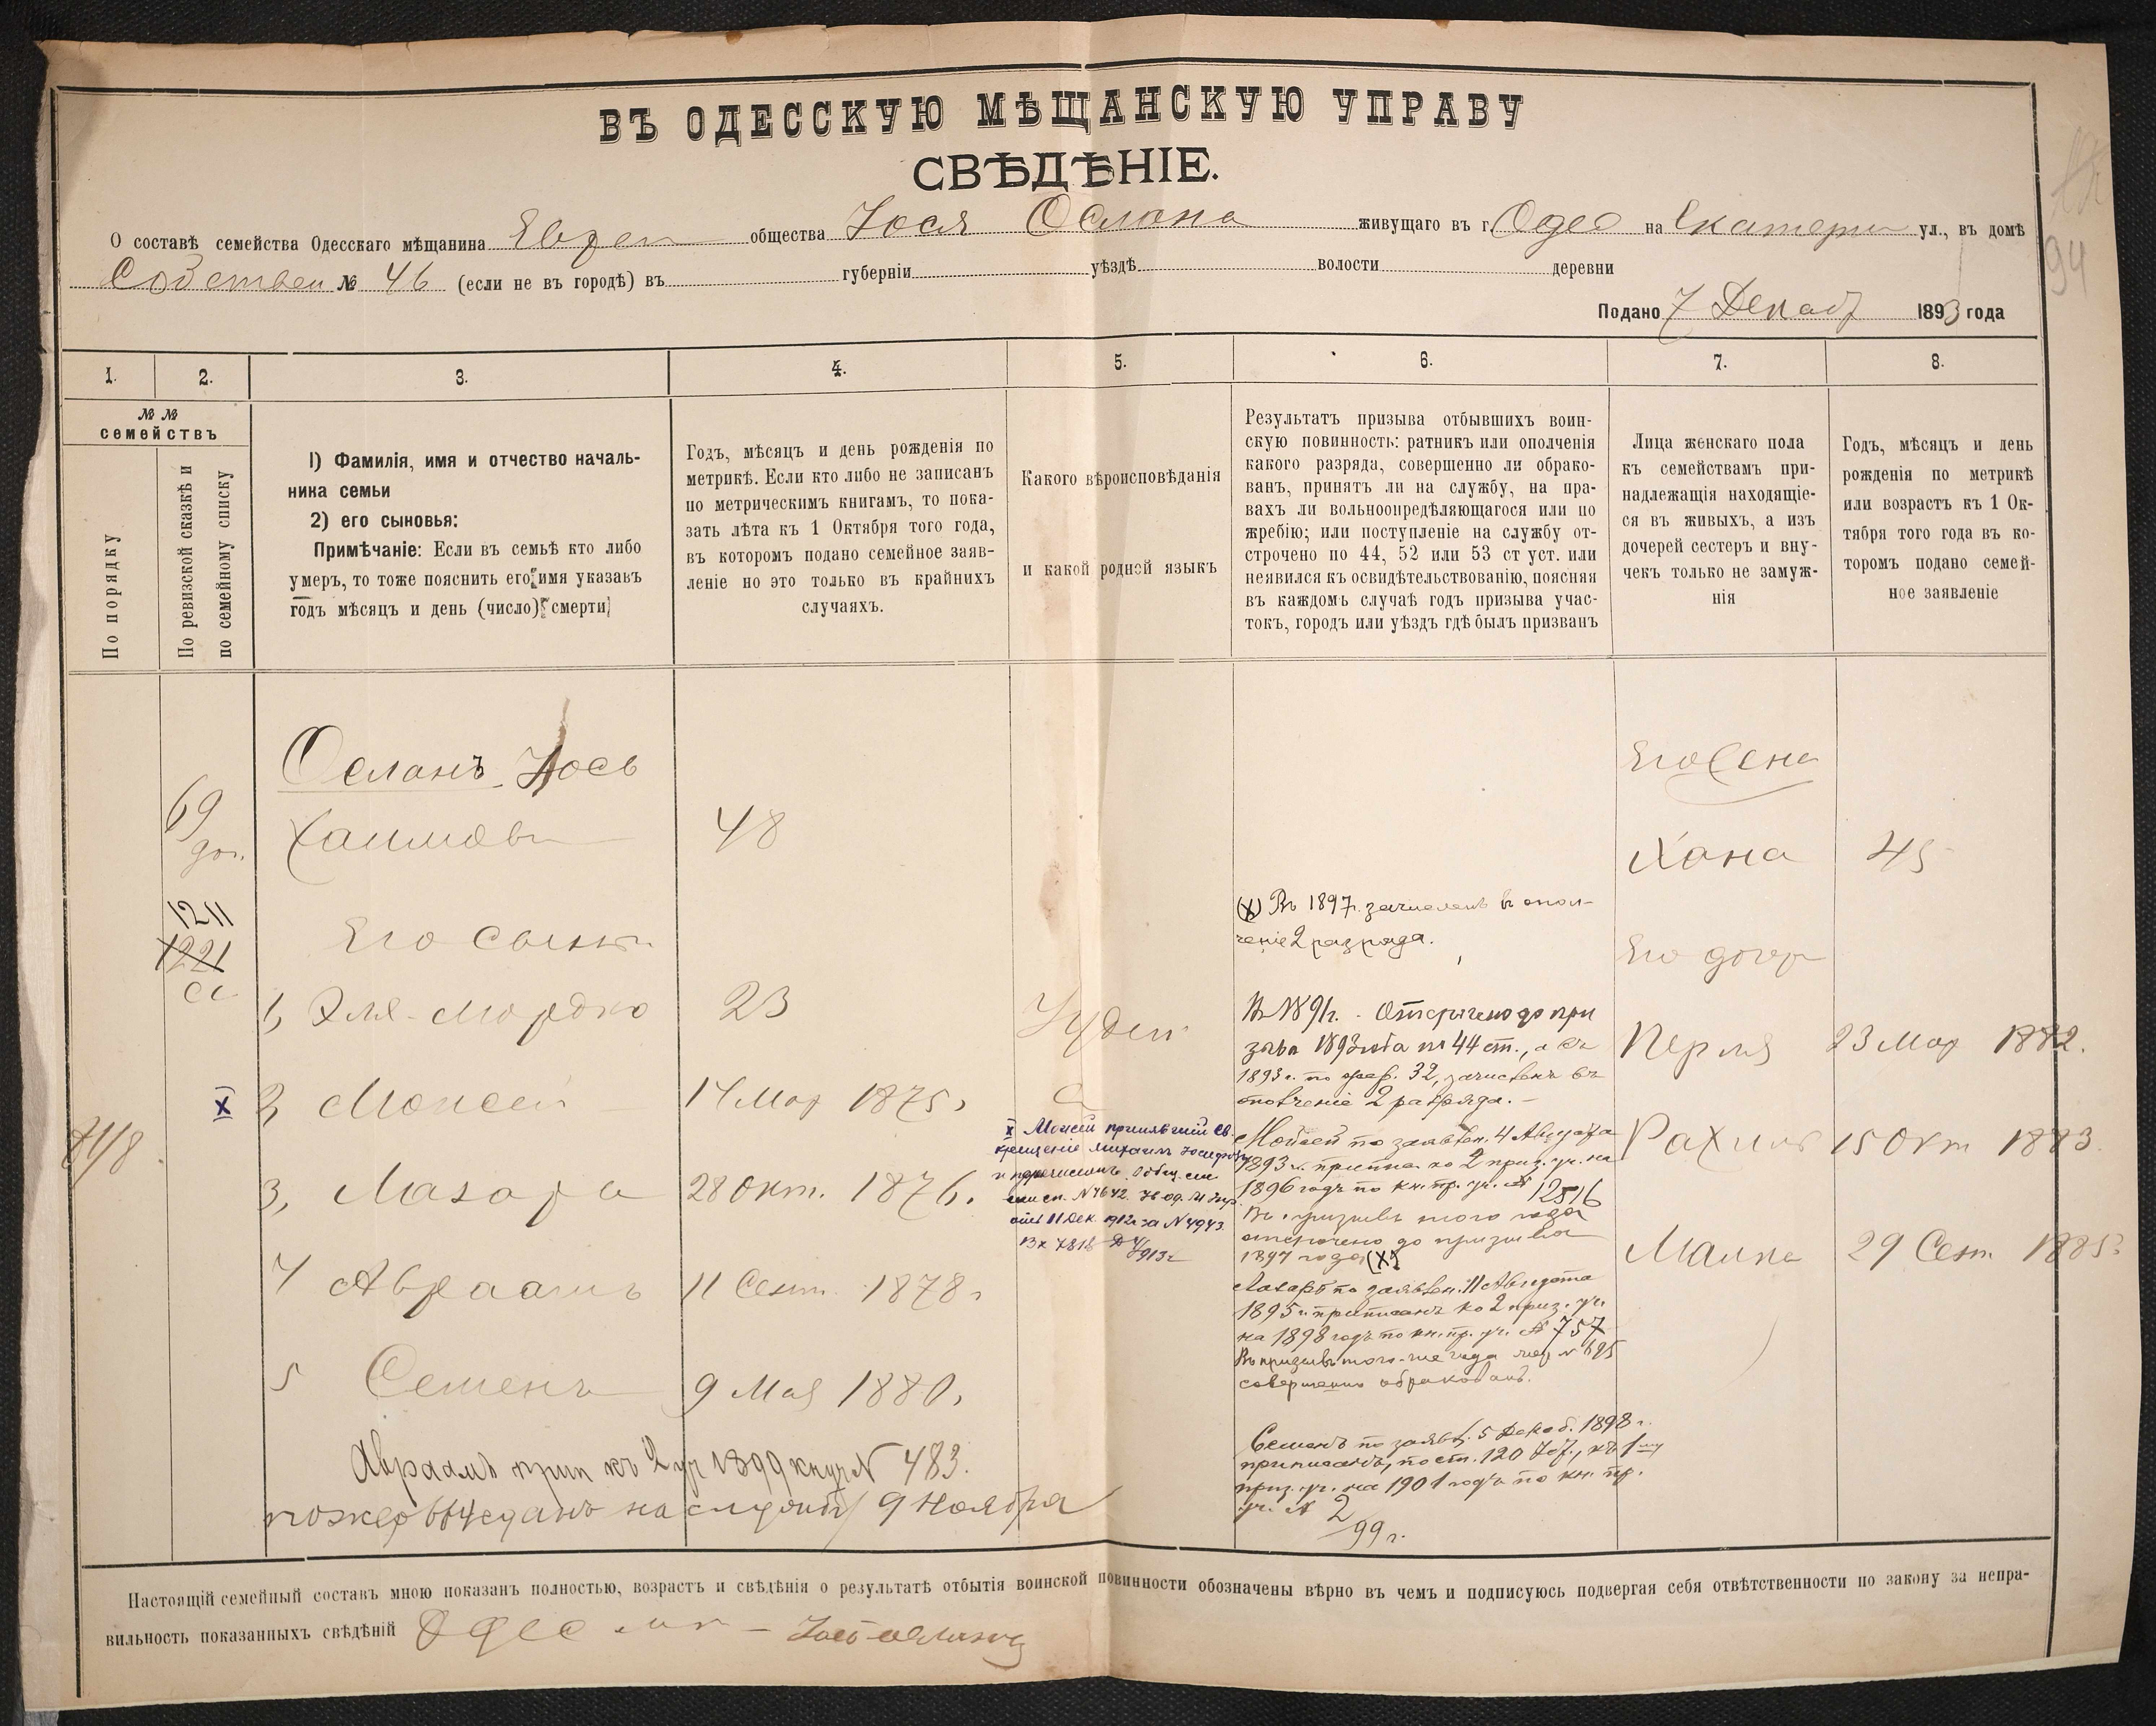 ВЪ ОДЕССКУЮ МѢЩАНСКУЮ УПРАВУ
СВѢДѢНІЕ.
О составѣ семейства Одесскаго мѣщанина Еврей общества Іося Ослана живущаго въ г. Одес на Екатерин ул., въ домѣ
Собствен № 46 (если не въ городѣ) въ губерніи уѣздѣ волости деревни
94
Подано 7 Декаб 1893 года
1. 2. 3. 4. 5. 6. 7. 8.
№ № семействъ
По порядку
По ревизской сказкѣ и
по семейному списку
1) Фамилія, имя и отчество началь-
ника семьи
2) его сыновья:
Примѣчаніе: Если въ семьѣ кто либо
умеръ, то тоже пояснить его имя указавъ
годъ мѣсяцъ и день (число) смерти
Годъ, мѣсяцъ и день рожденія по
метрикѣ. Если кто либо не записанъ
по метрическимъ книгамъ, то пока-
зать лѣта къ 1 Октября того года,
въ которомъ подано семейное заяв-
леніе но это только въ крайнихъ
случаяхъ.
Какого вѣроисповѣданія
и какой родной языкъ
Результатъ призыва отбывшихъ воин-
скую повинность: ратникъ или ополченія
какого разряда, совершенно ли обрако-
ванъ, принятъ ли на службу, на пра-
вахъ ли вольноопредѣляющагося или по
жребію; или поступленіе на службу от-
строчено по 44, 52 или 53 ст уст. или
неявился къ освидѣтельствованію, поясняя
въ каждомъ случаѣ годъ призыва учас-
токъ, городъ или уѣздъ гдѣ былъ призванъ
Лица женскаго пола
къ семействамъ при-
надлежащія находящіе-
ся въ живыхъ, а изъ
дочерей сестеръ и вну-
чекъ только не замуж-
нія
Годъ, мѣсяцъ и день
рожденія по метрикѣ
или возрастъ къ 1 Ок-
тября того года въ ко-
торомъ подано семей-
ное заявленіе
Осланъ Іось
Хаимови 48
69
доп.
1211
1221
Его сынъ
1, Эля-Мордко 23
Іудей
x 2, Моисей 14 Мар 1875.
3, Лазарь 28 окт. 1876.
4 Авраамъ 11 Сент. 1878.
5 Семенъ 9 Мая 1880.
Авраамъ прип къ 2 уч 1899 кн уч N 483.
на службу 9 Ноября
x Моисей принявшій св.
крещеніе Михаилъ Іосифовъ
N 4642
11 Дек. 1912 за N 4943
Вх 7818
913 г.
(x) Въ 1897 г. зачисленъ въ опол-
ченіе 2 разряда.
Въ 1891 г. Отсрочено до при
зыва 1892 года по 44 ст., а въ
1893 г. по жреб. 32, зачисленъ въ
ополченіе 2 разряда.
Моисей по заявлен. 4 Августа
1893 г. припис. ко 2 приз. уч. на
1896 годъ по кн. пр. уч. № 12516
Въ призывъ того года
отсрочено до призыва
1897 года (x)
Лазарь по заявлен. 11 Августа
1895 г. приписанъ ко 2 приз. уч.
на 1898 годъ по кн. пр. уч. № 757
Въ призывъ того-же года жер № 695
совершенно обракованъ.
Семенъ по заявл. 5 Декаб. 1898 г.
приписанъ, по ст. 120 Уст., къ 1му
приз. уч. на 1901 годъ по кн. пр.
уч. № 2
99 г.
Его жена
Хана 45
Его дочер
Перля 23 Мар 1882.
Рахиль 15 Окт 1883
Малка 29 Сент 1885
Настоящій семейный составъ мною показанъ полностью, возрастъ и свѣдѣнія о результатѣ отбытія воинской повинности обозначены вѣрно въ чемъ и подписуюсь подвергая себя отвѣтственности по закону за непра-
вильность показанныхъ свѣдѣній Одес Іось Осланъ